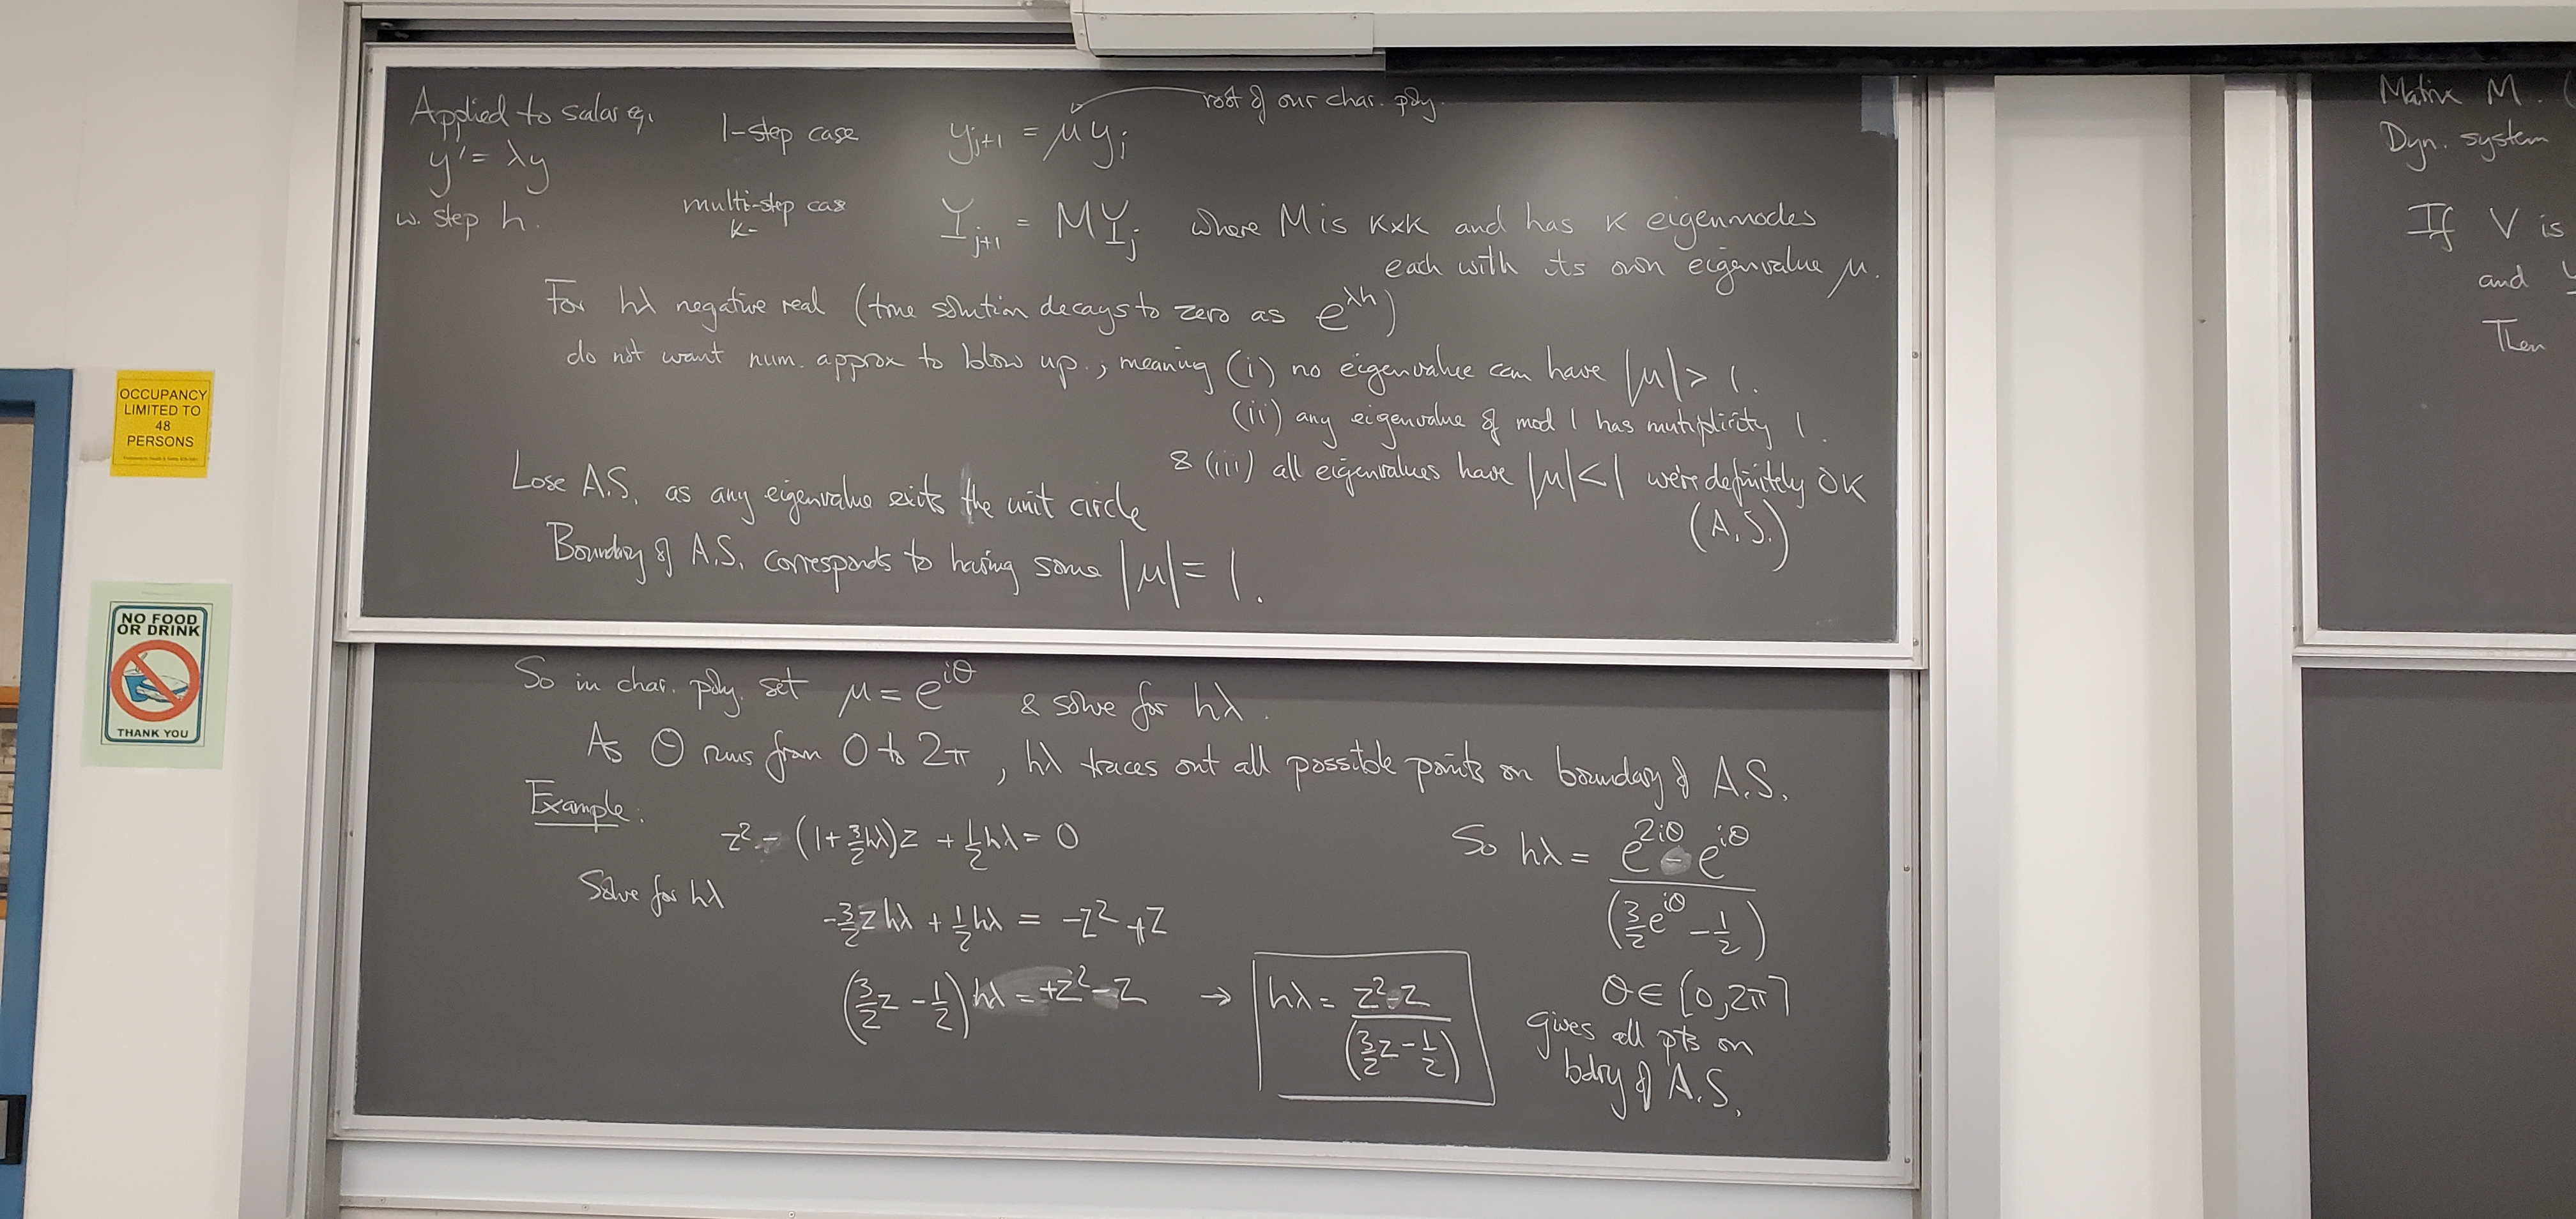 Applied to scalar eq.
y' = λy
w. step h.
1-step case
y_{j+1} = μ y_j
root of our char. poly.
multi-step case
k-
Y_{j+1} = M Y_j where M is K×K and has K eigenmodes
each with its own eigenvalue μ.
For hλ negative real (true solution decays to zero as e^{λh})
do not want num. approx to blow up., meaning (i) no eigenvalue can have |μ| > 1.
(ii) any eigenvalue of mod 1 has mutiplicity 1.
& (iii) all eigenvalues have |μ| < 1 we're definitely OK
(A.S.)
Lose A.S. as any eigenvalue exits the unit circle
Boundary of A.S. corresponds to having some |μ| = 1.
So in char. poly. set μ = e^{iθ} & solve for hλ.
As θ runs from 0 to 2π, hλ traces out all possible points on boundary of A.S.
Example:
z² - (1 + 3/2 hλ)z + 1/2 hλ = 0
Solve for hλ
-3/2 z hλ + 1/2 hλ = -z² + z
(3/2 z - 1/2) hλ = +z² - z → hλ = (z² - z) / (3/2 z - 1/2)
So hλ = (e^{2iθ} - e^{iθ}) / (3/2 e^{iθ} - 1/2)
θ ∈ [0, 2π]
gives all pts on
bdry of A.S.
Matrix M. (
Dyn. system
If V is
and
Then
OCCUPANCY
LIMITED TO
48
PERSONS
NO FOOD
OR DRINK
THANK YOU